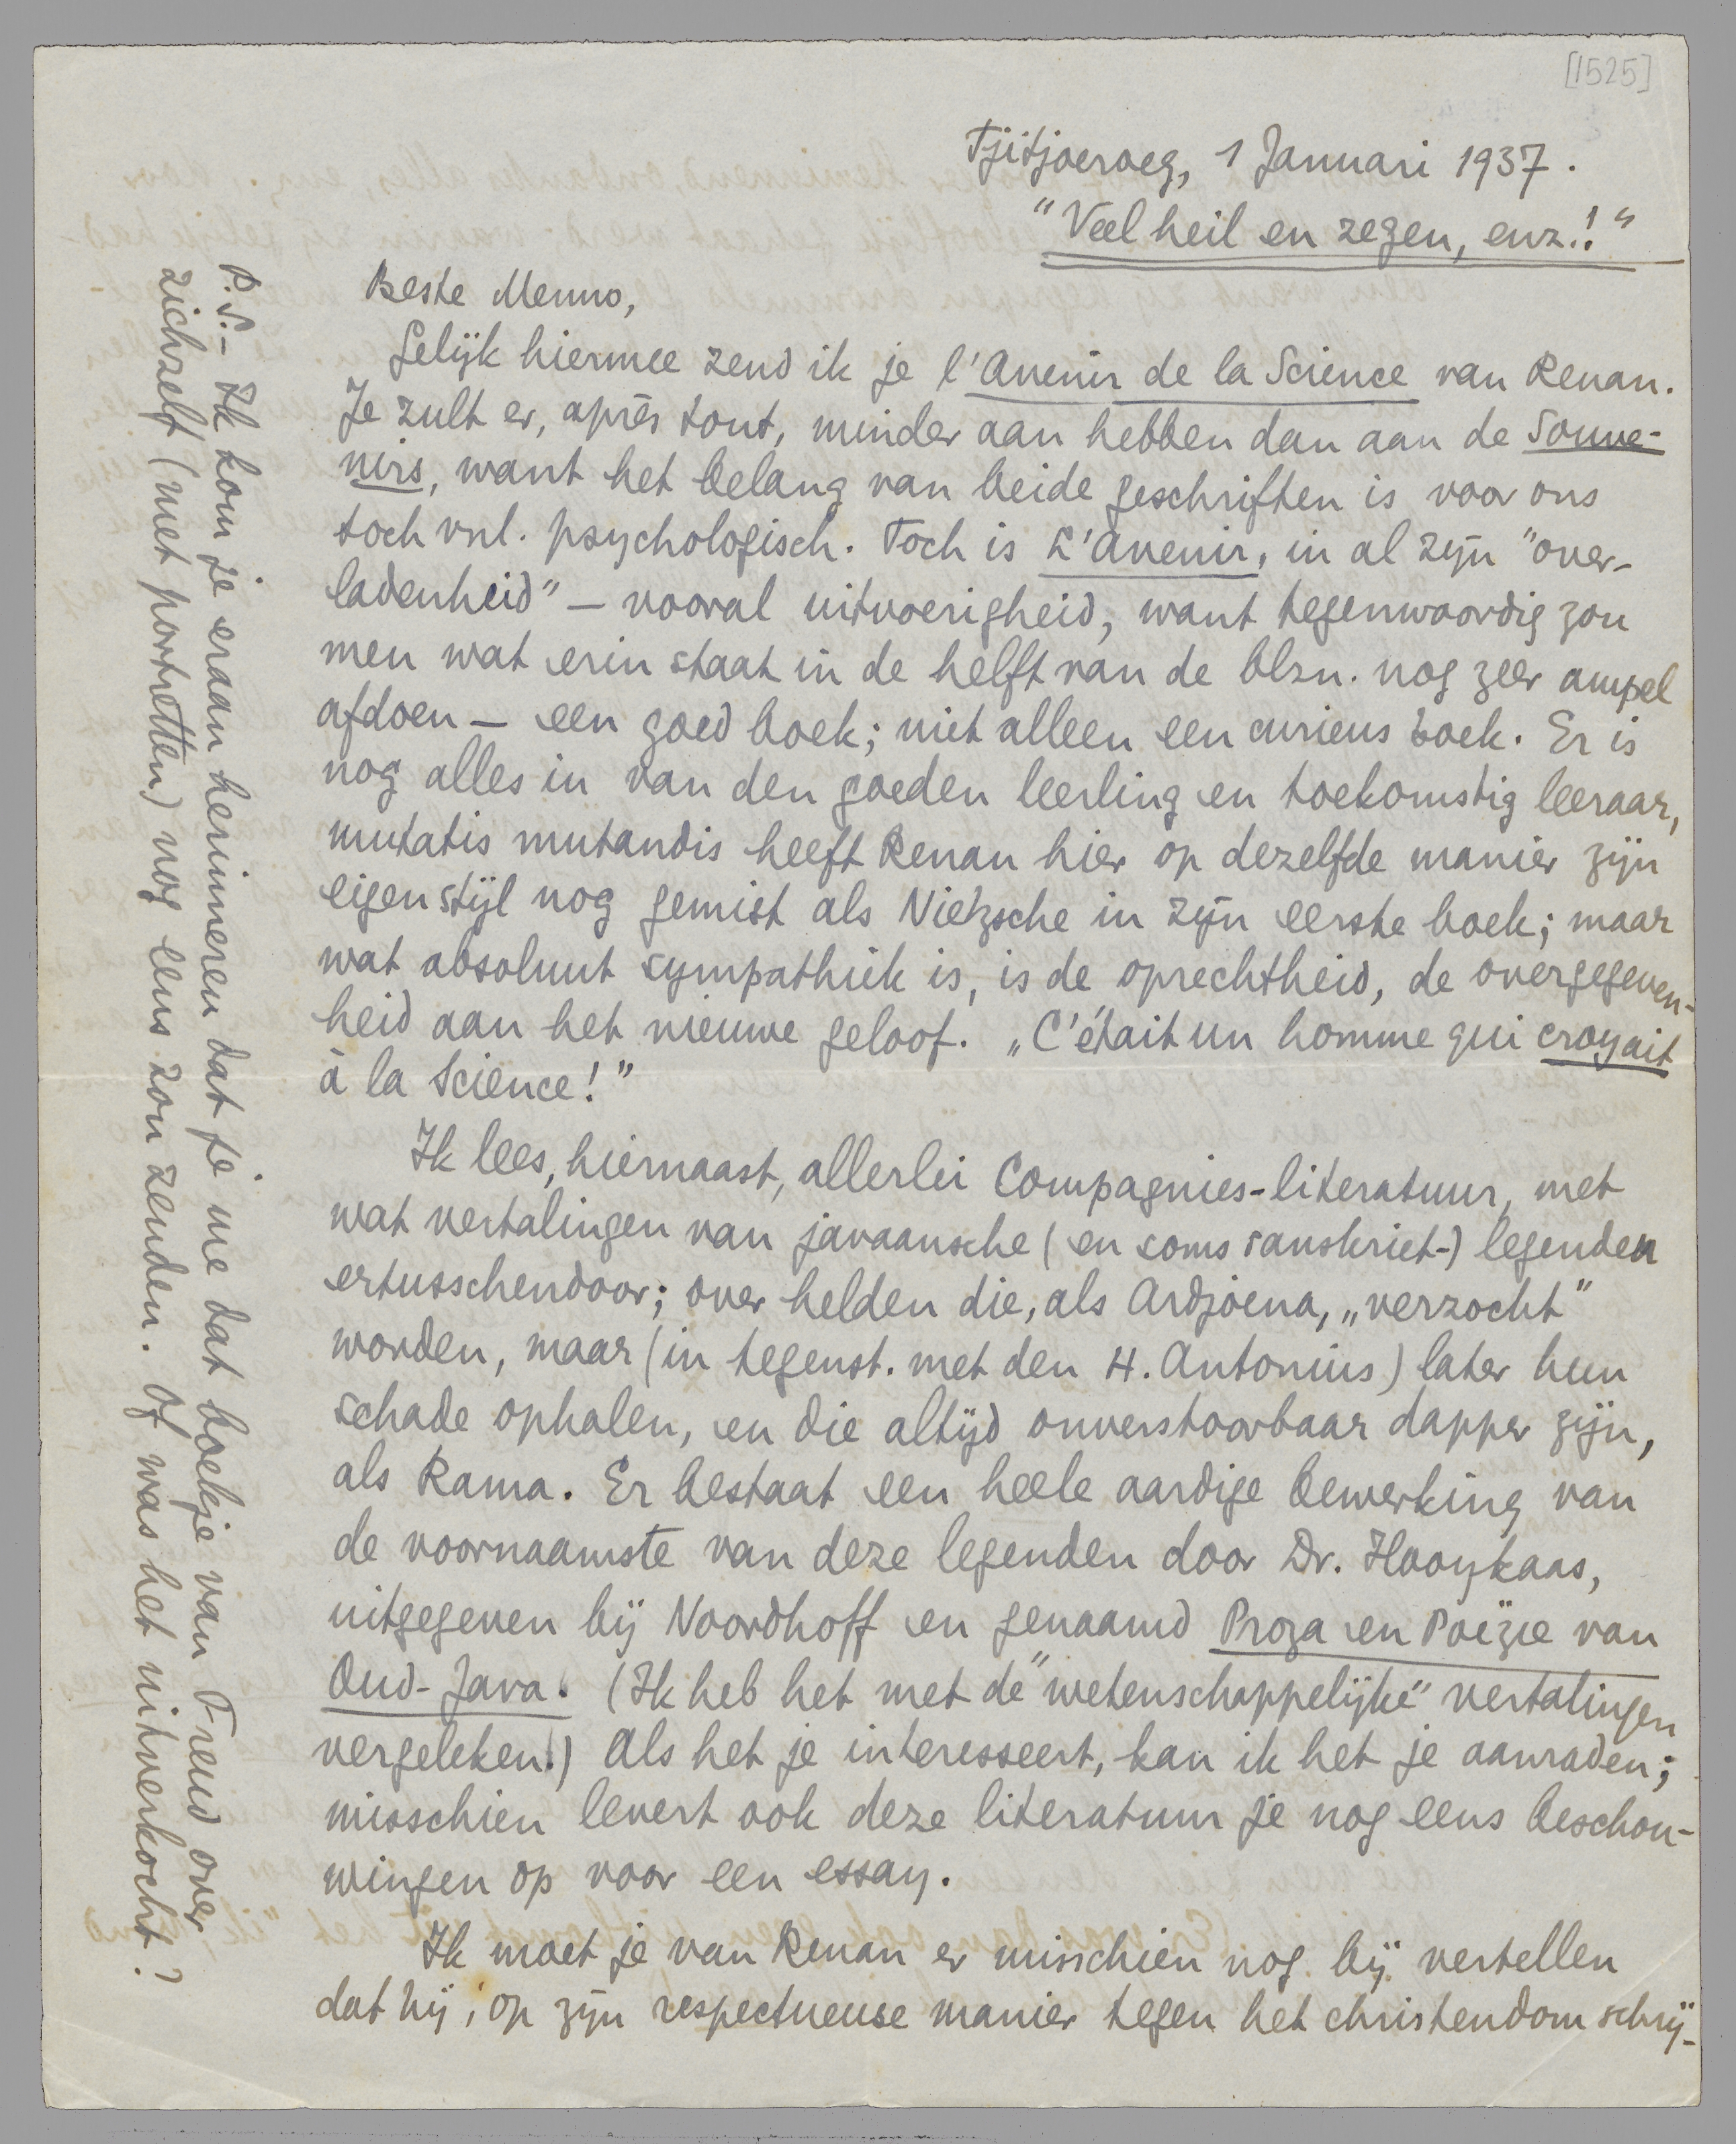 [1525]
Tjitjoeroeg, 1 Januari 1937.
"Veel heil en zegen, enz.!"
Beste Menno,
Gelijk hiermee zend ik je l'Avenir de la Science van Renan.
Je zult er, après tout, minder aan hebben dan aan de Souve-
nirs, want het belang van beide geschriften is voor ons
toch vnl. psychologisch. Toch is L'Avenir, in al zijn "over-
ladenheid" — vooral uitvoerigheid, want tegenwoordig zou
men wat erin staat in de helft van de blzn. nog zeer ampel
afdoen — een goed boek; niet alleen een curieus boek. Er is
nog alles in van den goeden leerling en toekomstig leeraar,
mutatis mutandis heeft Renan hier op dezelfde manier zijn
eigen stijl nog gemist als Nietzsche in zijn eerste boek; maar
wat absoluut sympathiek is, is de oprechtheid, de overgegeven-
heid aan het nieuwe geloof. „C'était un homme qui croyait
à la Science!"
Ik lees, hiernaast, allerlei Compagnies-literatuur, met
wat vertalingen van javaansche (en soms sanskriet-) legenden
ertusschendoor; over helden die, als Ardjoena, „verzocht"
worden, maar (in tegenst. met den H. Antonius) later hun
schade ophalen, en die altijd onverstoorbaar dapper zijn,
als Rama. Er bestaat een heele aardige bewerking van
de voornaamste van deze legenden door Dr. Hooykaas,
uitgegeven bij Noordhoff en genaamd Proza en Poëzie van
Oud-Java. (Ik heb het met de "wetenschappelijke" vertalingen
vergeleken!) Als het je interesseert, kan ik het je aanraden;
misschien levert ook deze literatuur je nog eens beschou-
wingen op voor een essay.
Ik moet je van Renan er misschien nog bij vertellen
dat hij, op zijn respectueuse manier tegen het christendom schrij-
P.S. – Ik kom je eraan herinneren dat je me dat boekje van Freud over
zichzelf (met portretten) nog eens zou zenden. Of was het uitverkocht?